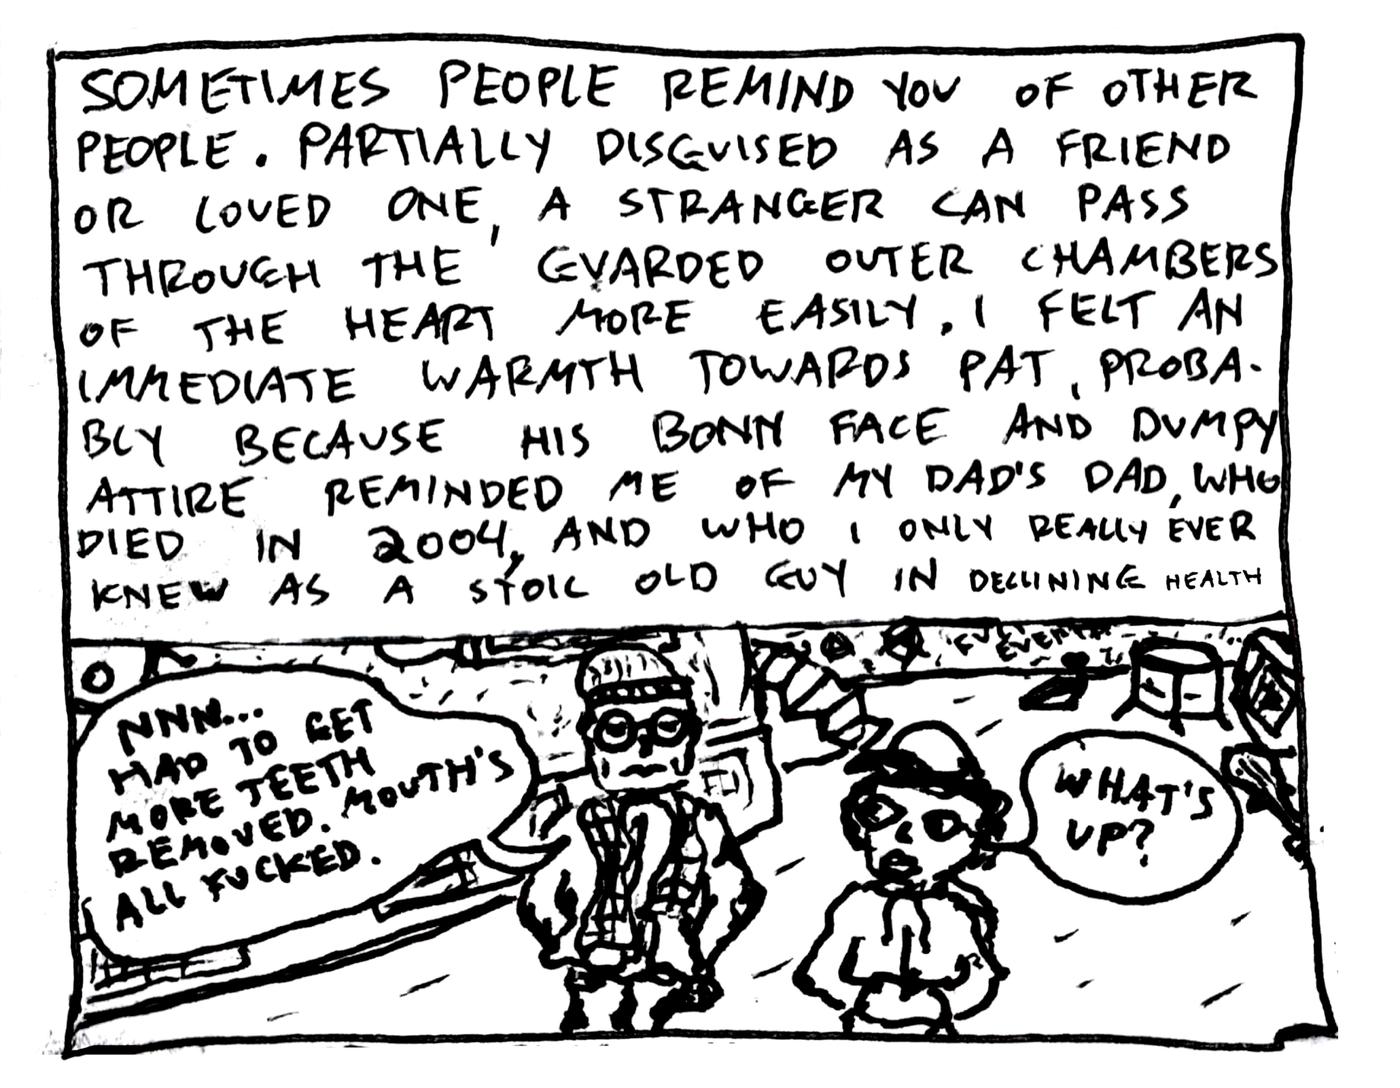 SOMETIMES PEOPLE REMIND YOU OF OTHER
PEOPLE. PARTIALLY DISGUISED AS A FRIEND
OR LOVED ONE, A STRANGER CAN PASS
THROUGH THE GUARDED OUTER CHAMBERS
OF THE HEART MORE EASILY. I FELT AN
IMMEDIATE WARMTH TOWARDS PAT, PROBA-
BLY BECAUSE HIS BONY FACE AND DUMPY
ATTIRE REMINDED ME OF MY DAD'S DAD, WHO
DIED IN 2004, AND WHO I ONLY REALLY EVER
KNEW AS A STOIC OLD GUY IN DECLINING HEALTH
NNN...
HAD TO GET
MORE TEETH
REMOVED. MOUTH'S
ALL FUCKED.
WHAT'S
UP?